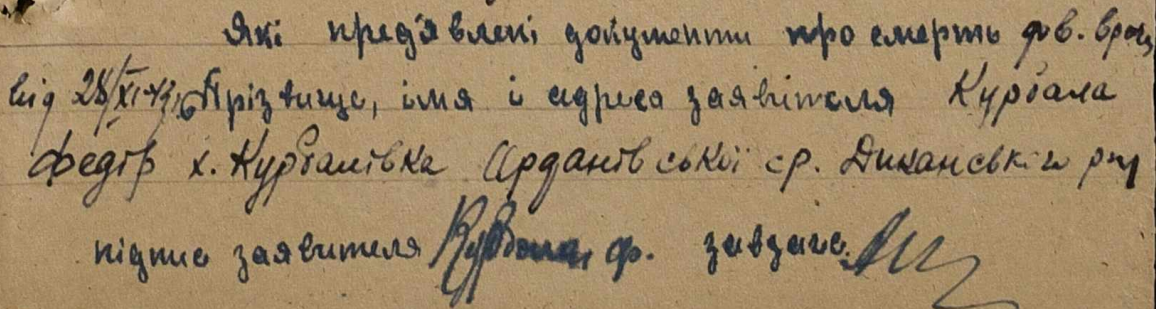 Які предявлені документи про смерть дов. врач
від 28/XI-47р Прізвище, імя і адреса заявителя Курбала
Федір х. Курбалівка Орданівської ср. Диканського рну
підпис заявителя Курбала ф. завзагс.